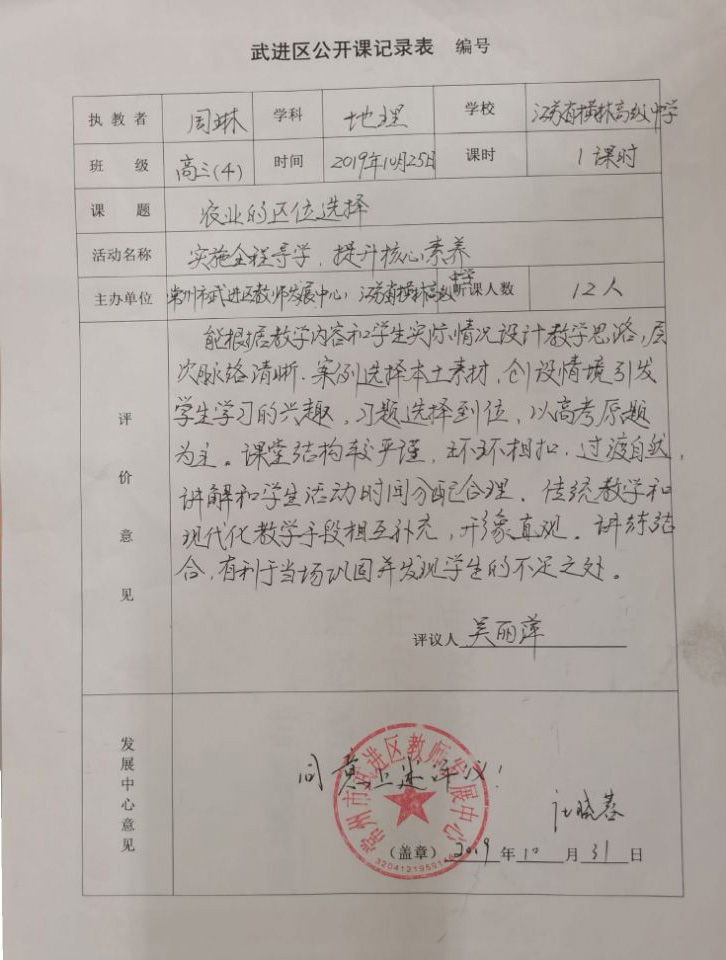 武进区公开课记录表 编号
执教者 周琳 学科 地理 学校 江苏省横林高级中学
班级 高三(4) 时间 2019年10月25日 课时 1课时
课题 农业的区位选择
活动名称 实施全程导学，提升核心素养
主办单位 常州市武进区教师发展中心；江苏省横林高级中学 听课人数 12人
评价意见
能根据教学内容和学生实际情况设计教学思路，层
次脉络清晰.案例选择本土素材，创设情境引发
学生学习的兴趣，习题选择到位，以高考原题
为主。课堂结构较严谨，环环相扣.过渡自然，
讲解和学生活动时间分配合理。传统教学和
现代化教学手段相互补充，形象直观。讲练结
合，有利于当场巩固并发现学生的不足之处。
评议人 吴丽萍
发展中心意见
同意上述评议！
常州市武进区教师发展中心
（盖章） 2019年10月31日